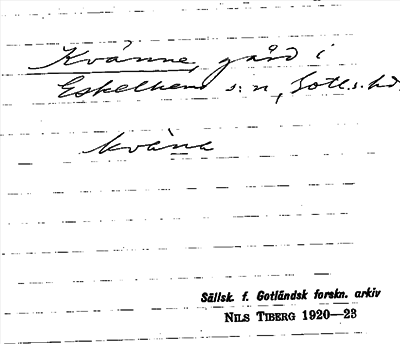 Kvänne, gård i
Eskelhem s:n, Gotl.s. hd.
kväna
Sällsk. f. Gotländsk forskn. arkiv
NILS TIBERG 1920—23